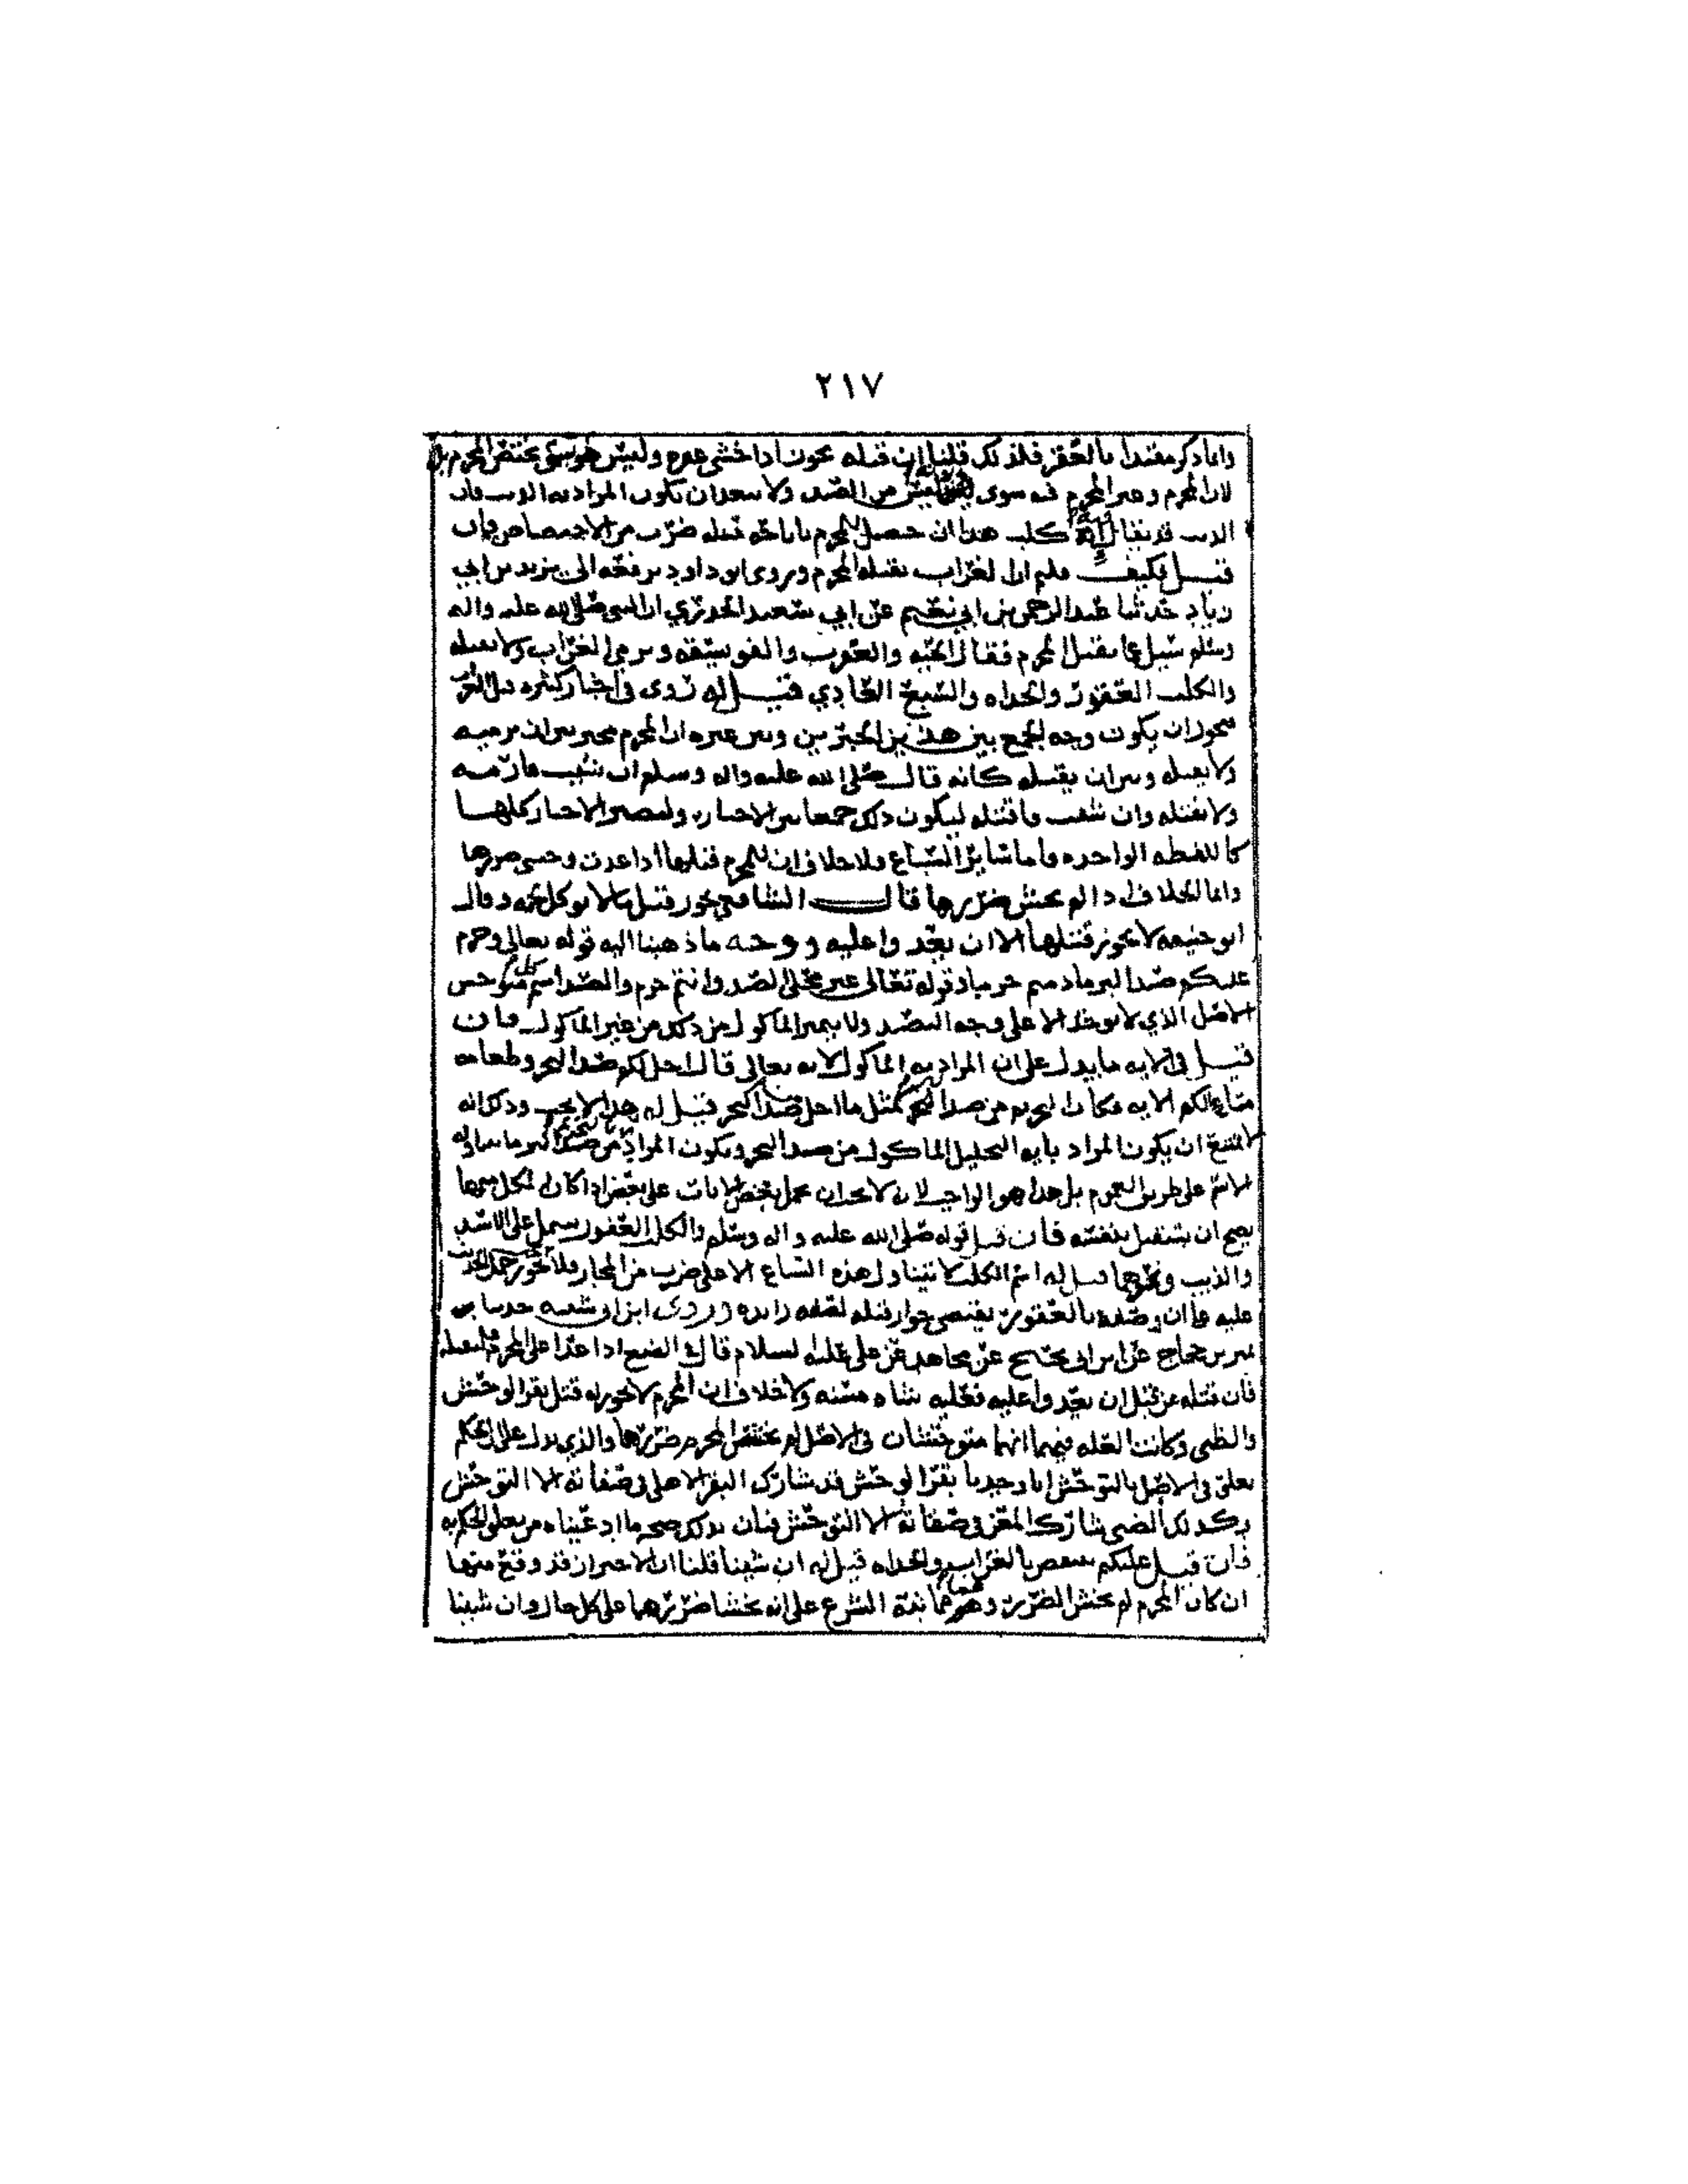 ٢١٧
وانما ذكر مقيدا بالعقر فلذلك قلنا ان قتله يجوز اذا خشي عقره وليس هو شي يختص المحرم بل
لان المحرم وغير المحرم فيه سوى من الصيد ولا يبعد ان يكون المراد به الذيب فان
الذيب قد يقال كلب هذا ان حصل للمحرم باباحة قتله ضرب من الاختصاص فان
قيل فكيف قلتم ان الغراب يقتله المحرم وروى ابو داود يرفعه الى يزيد بن ابي
زياد حدثنا عبد الرحمن بن ابي نعيم عن ابي سعيد الخدري ان النبي صلى الله عليه واله
وسلم سيل عما يقتل المحرم فقال الحيه والعقرب والفويسقه ويرمي الغراب ولا يقتله
والكلب العقور والحداه والسبع العادي قيل له روى في اخبار كثيره قتل الغراب
فيجوز ان يكون وجه الجمع بين هذين الخبرين وبين غيره ان المحرم مخير بين ان يرميه
ولا يقتله وبين ان يقتله كانه قال صلى الله عليه واله وسلم ان شيت فارمه
ولا تقتله وان شيت فاقتله ليكون ذلك جمعا بين الاخبار ولتصير الاخبار كلها
كاللفظه الواحده واما سائر السباع فلا خلاف ان للمحرم قتلها اذا عدت وخشي ضررها
وانما الخلاف اذا لم يخش ضررها قال الشافعي يجوز قتل ما لا يوكل لحمه وقال
ابو حنيفه لا يجوز قتلها الا ان يعدوا عليه ووجه ما ذهبنا اليه قوله تعالى وحرم
عليكم صيد البر ما دمتم حرما وقوله تعالى غير محلي الصيد وانتم حرم والصيد اسم كل متوحش
الاصل الذي لا يوخذ الا على وجه التصيد ولا يتميز الماكول من ذلك من غير الماكول فان
قيل في الايه ما يدل على ان المراد به الماكول لانه تعالى قال احل لكم صيد البحر وطعامه
متاعا لكم الايه فكان تحريم من صيد البر كمثل ما احل من صيد البحر قيل له هذا لا يجب وذلك انه
لا يمتنع ان يكون المراد بايه التحليل الماكول من صيد البحر ويكون المراد بالتحريم من صيد البر ما يتناوله
الاسم على طريق العموم بل هذا هو الواجب لان لا يجب ان يحمل بعض الايات على بعض اذا كان لكل منهما
يصح ان يستقل بنفسه فان قيل قوله صلى الله عليه واله وسلم والكلب العقور يشتمل على الاسد
والذيب ونحوهما قيل له اسم الكلب لا يتناول هذه السباع الا على ضرب من المجاز فلا يجوز حمل الحديث
عليه فاما ان وصفه بالعقور يقتضي جواز قتله لصفه زايده وروى ابن ابي شيبه حدثنا
بن حجاج عن ابن ابي نجيح عن مجاهد عن علي عليه السلام قال في الضبع اذا عدا على المحرم فليقتله
فان قتله من قبل ان يعدوا عليه فعليه شاه مسنه ولا خلاف ان المحرم لا يجوز له قتل بقر الوحش
والظبي وكانت العله فيهما انهما متوحشتان في الاصل لم يختص المحرم ضررهما والذي يدل على ان الحكم
تعلق في الاصل بالتوحش انا وجدنا بقر الوحش قد شارك البقر الاهلي في صفاته الا التوحش
وكذلك الضبي شارك المعز في صفاته الا التوحش فبان بذلك صحه ما ادعيناه من تعلق الحكم به
فان قيل علتكم تنتقض بالغراب والحداه قيل له ان شينا قلنا ان الاحتراز قد وقع منها
ان كان المحرم لم يخش الضرر وهو مما نبه الشرع على انه يخشا ضررهما على كل حال وان شينا